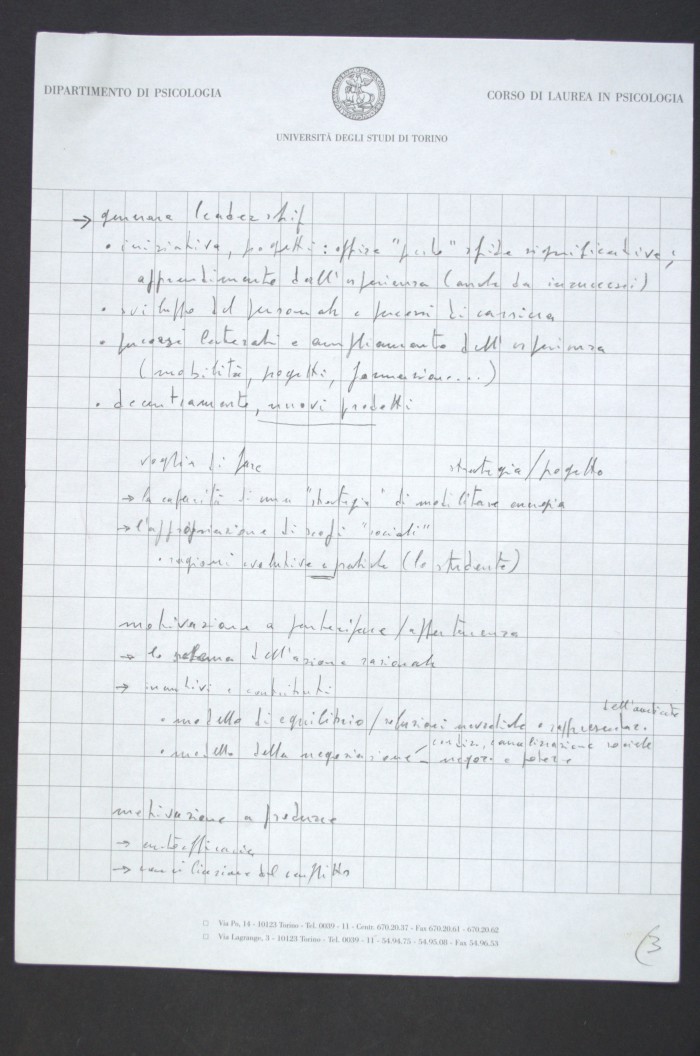 DIPARTIMENTO DI PSICOLOGIA
CORSO DI LAUREA IN PSICOLOGIA
UNIVERSITÀ DEGLI STUDI DI TORINO
→ generare leadership
• iniziativa, progetti: offrire "presto" sfide significative;
apprendimento dall'esperienza (anche da insuccessi)
• sviluppo del personale e percorsi di carriera
• percorsi laterali e ampliamento dell'esperienza
(mobilità, progetti, formazione...)
• decentramento, nuovi prodotti
voglia di fare
strategia/progetto
→ la capacità di una "strategia" di mobilitare energia
→ l'appropriazione di scopi "sociali"
• ragioni evolutive e pratiche (lo studente)
motivazione a partecipare/appartenenza
→ lo schema dell'azione razionale
→ incentivi e contributi
dell'ambiente
• modello di equilibrio/relazioni
• modello della negoziazione
sociale
potere
motivazione a produrre
→ autoefficacia
→ del conflitto
□ Via Po, 14 - 10123 Torino - Tel. 0039 - 11 - Centr. 670.20.37 - Fax 670.20.61 - 670.20.62
□ Via Lagrange, 3 - 10123 Torino - Tel. 0039 - 11 - 54.94.75 - 54.95.08 - Fax 54.96.53
3